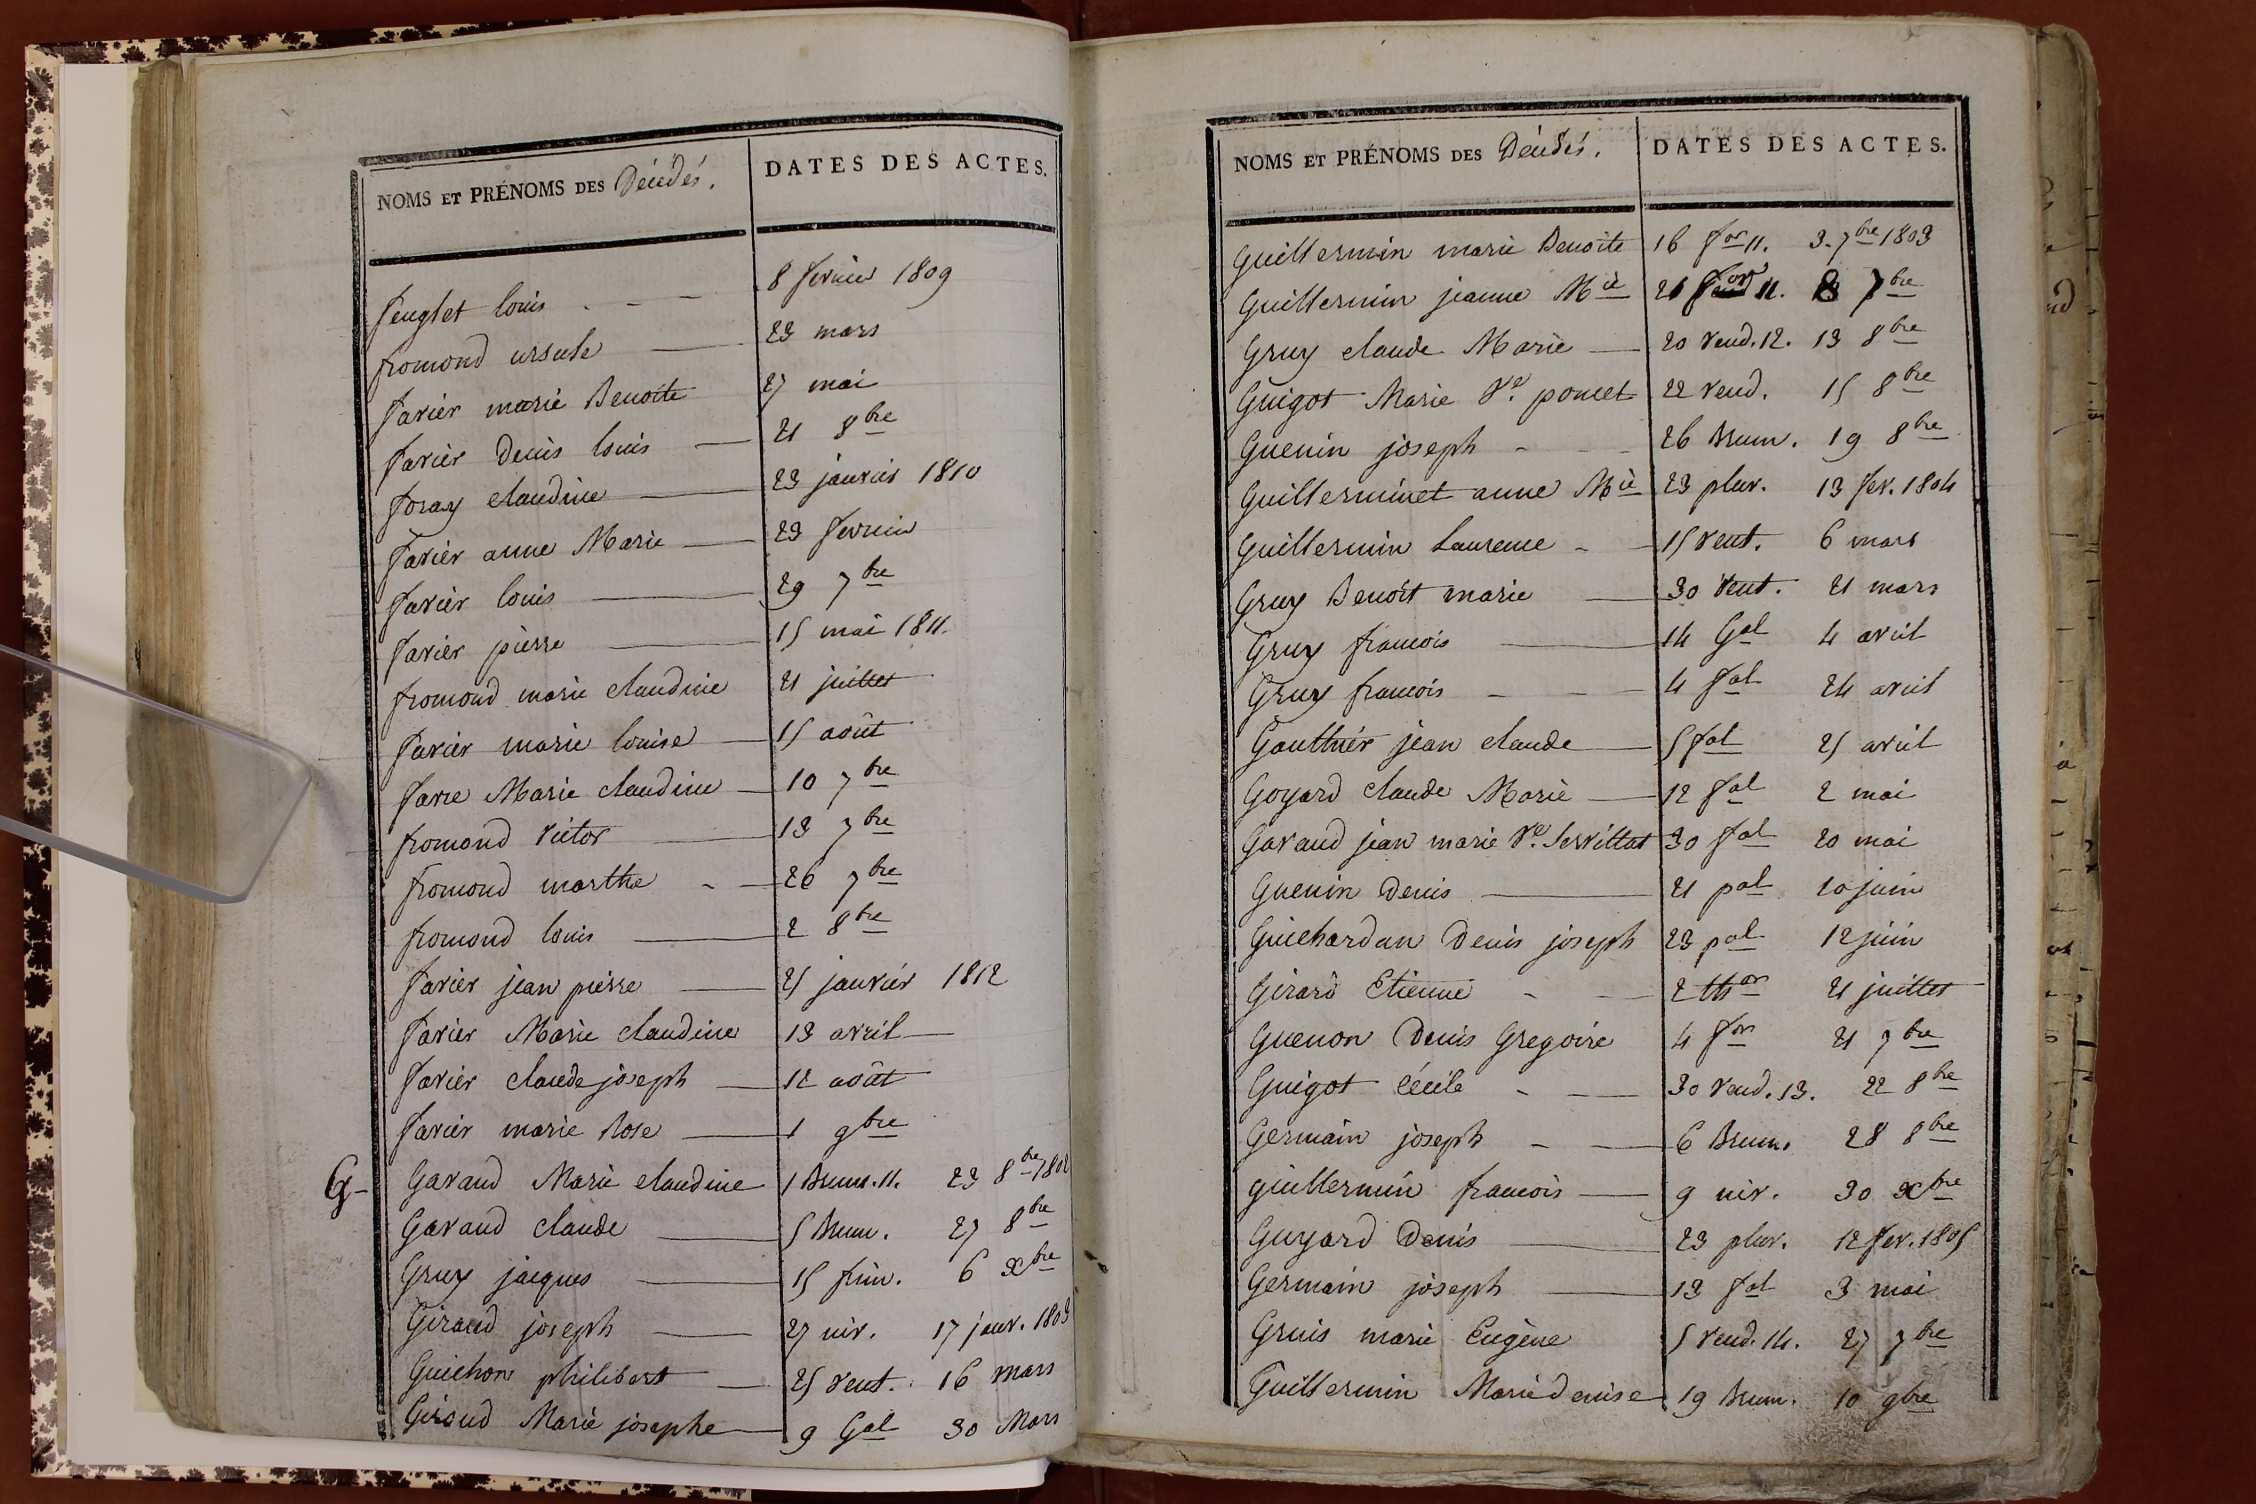 NOMS ET PRÉNOMS DES Décédés. DATES DES ACTES.
Feuglet louis - - - 8 fevrier 1809
fromond ursule — 23 mars
Favier marie Benoite 27 mai
Favier Denis louis — 21 8bre
Foray claudine — 23 janvier 1810
Favier anne Marie — 23 fevrier
Favier louis — 29 7bre
Favier pierre — 15 mai 1811.
fromond marie claudine 21 juillet
Favier marie louise — 15 août
Favre Marie claudine — 10 7bre
fromond victor — 13 7bre
fromond marthe - — 26 7bre
fromond louis — 2 8bre
Favier jean pierre — 25 janvier 1812
Favier Marie claudine 13 avril
Favier claude joseph — 12 août
Favier marie Rose — 1 9bre
G- Gavand Marie claudine 1 Brum. 11. 23 8bre 1802
Gavand claude — 5 Brum. 27 8bre
Gruy jacques — 15 frim. 6 xbre
Giraud joseph — 27 niv. 17 janv. 1803
Guichon philibert — 25 vent. 16 mars
Giraud Marie josephe — 9 Gal 30 Mars
NOMS ET PRÉNOMS DES Décédés. DATES DES ACTES.
Guillermin marie Benoite 16 for 11. 3. 7bre 1803
Guillermin jeanne Mie 21 for 11. 8 7bre
Gruy claude Marie — 20 vend. 12. 13 8bre
Guigot Marie Ve. poncet 22 vend. 15 8bre
Guenin joseph - - - 26 Brum. 19 8bre
Guillerminet anne Mie 23 pluv. 13 fev. 1804
Guillermin Laurence - - 15 vent. 6 mars
Gruy Benoit marie — 30 vent. 21 mars
Gruy francois — 14 Gal 4 avril
Gruy francois - - — 4 fal 24 avril
Gauthier jean claude — 5 fal 25 avril
Goyard claude Marie — 12 fal 2 mai
Gavaud jean marie Ve. Servillat 30 fal 20 mai
Guenin Denis — 21 pal 10 juin
Guichardan Denis joseph 23 pal 12 juin
Girard Etienne - — 2 thor 21 juillet
Guenon Denis Gregoire 4 for 21 7bre
Guigot Cécile - — 30 vend. 13. 22 8bre
Germain joseph - — 6 Brum. 28 8bre
guillermin francois — 9 niv. 30 xbre
Guyard Denis — 23 pluv. 12 fev. 1805
Germain joseph — 13 fal 3 mai
Gruis marie Eugène 5 vend. 14. 27 7bre
Guillermin Marie denise — 19 Brum. 10 9bre